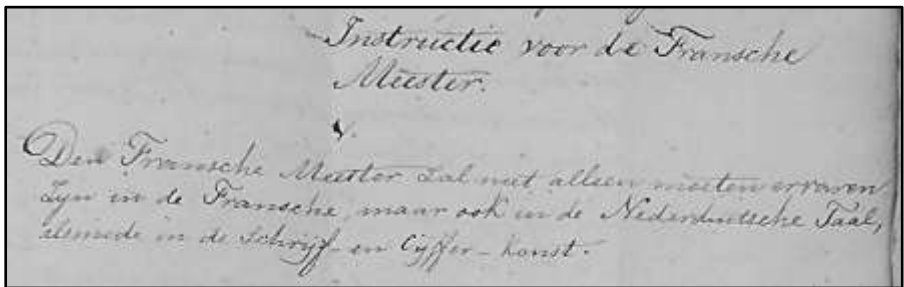 Instructie voor de Fransche
Meester.
1.
Den Fransche Meester zal niet alleen moeten ervaren
zyn in de Fransche, maar ook in de Nederduitsche Taal,
alsmede in de Schryf- en Cyffer-konst.